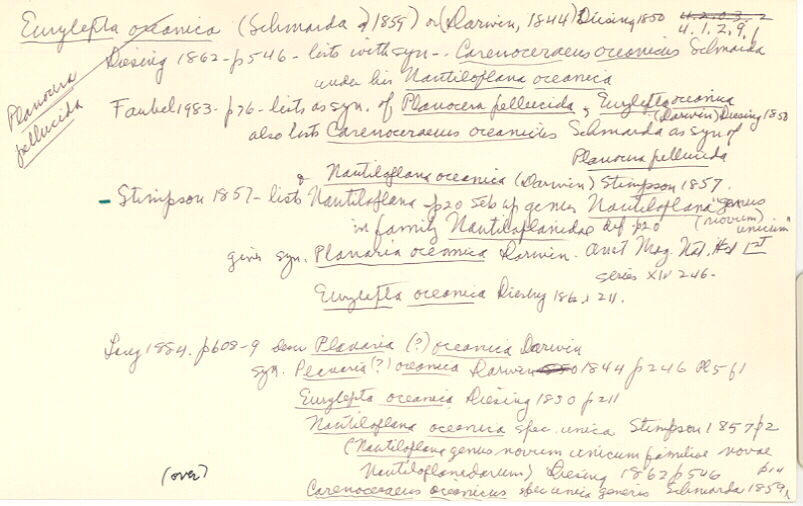 Eurylepta oceanica (Schmarda, 1859) or (Darwin, 1844) Diesing 1850 4.2.0.3.2
4.1.2.9.1
Diesing 1862-p546- lists with syn-. Carenoceraeus oceanicus Schmarda
under his Nautiloplana oceanica
Planocera
pellucida
Faubel 1983-p76- lists as syn. of Planocera pellucida, Eurylepta oceanica
(Darwin) Diesing 1850
also lists Carenoceraeus oceanicus Schmarda as syn of
Planocera pellucida
& Nautiloplana oceanica (Darwin) Stimpson 1857.
- Stimpson 1857- lists Nautiloplana p20 set up genus Nautiloplana "genus
in family Nautiloplanidae def. p20 (novum) unicum"
gives syn. Planaria oceanica Darwin. Ann Mag. Nat. Hist 1st
series XIV 246-
Eurylepta oceanica Diesing 211.
Lang 1884. p608-9 desc Planaria (?) oceanica Darwin
syn. Planaria (?) oceanica Darwin 1844 p246 Pl 5 f1
Eurylepta oceanica Diesing 1850 p211
Nautiloplana oceanica spec. unica Stimpson 1857 p2
(Nautiloplana genus novum unicum familiae novae
Nautiloplanidarum) Diesing 1862 p546
(over)
Carenoceraeus oceanicus spec unica generis Schmarda 1859,